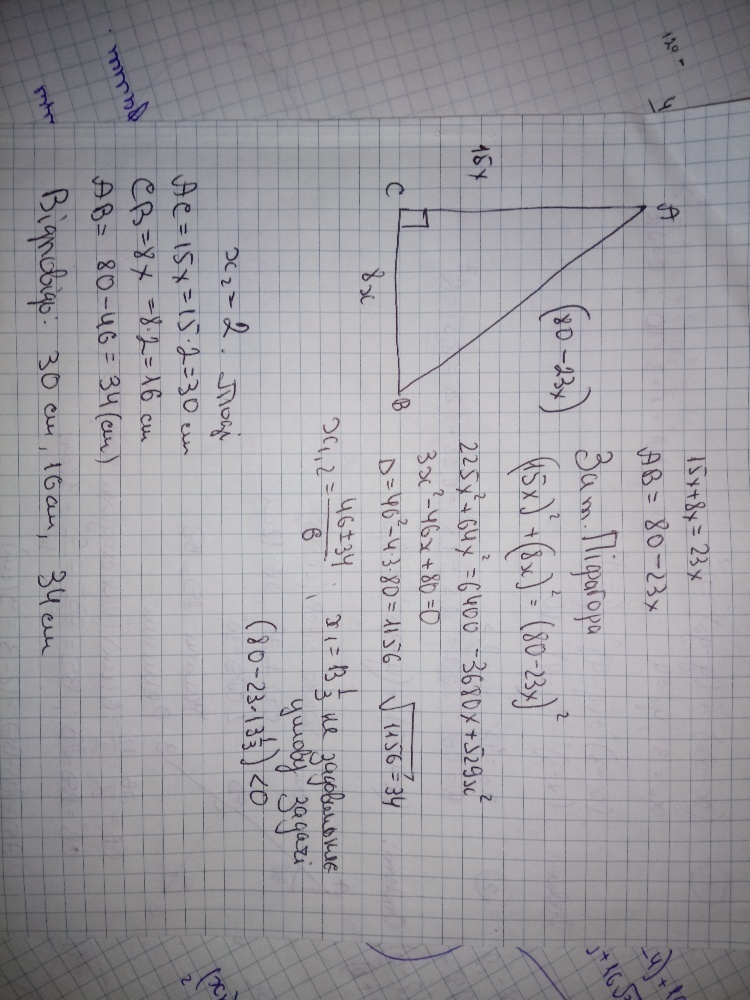 A
15x
C
8x
B
(80-23x)
15x+8x=23x
AB = 80-23x
За т. Піфагора
(15x)²+(8x)²=(80-23x)²
225x²+64x²=6400-3680x+529x²
3x²-46x+80=0
D=46²-4·3·80=1156 √1156=34
x₁,₂ = 46±34 / 6 , x₁=13 1/3 не задовольняє
умову задачі
(80-23·13 1/3)<0
x₂=2. Тоді
AC=15x=15·2=30 см
CB=8x=8·2=16 см
AB= 80-46=34(см)
Відповідь: 30 см, 16 см, 34 см
120°